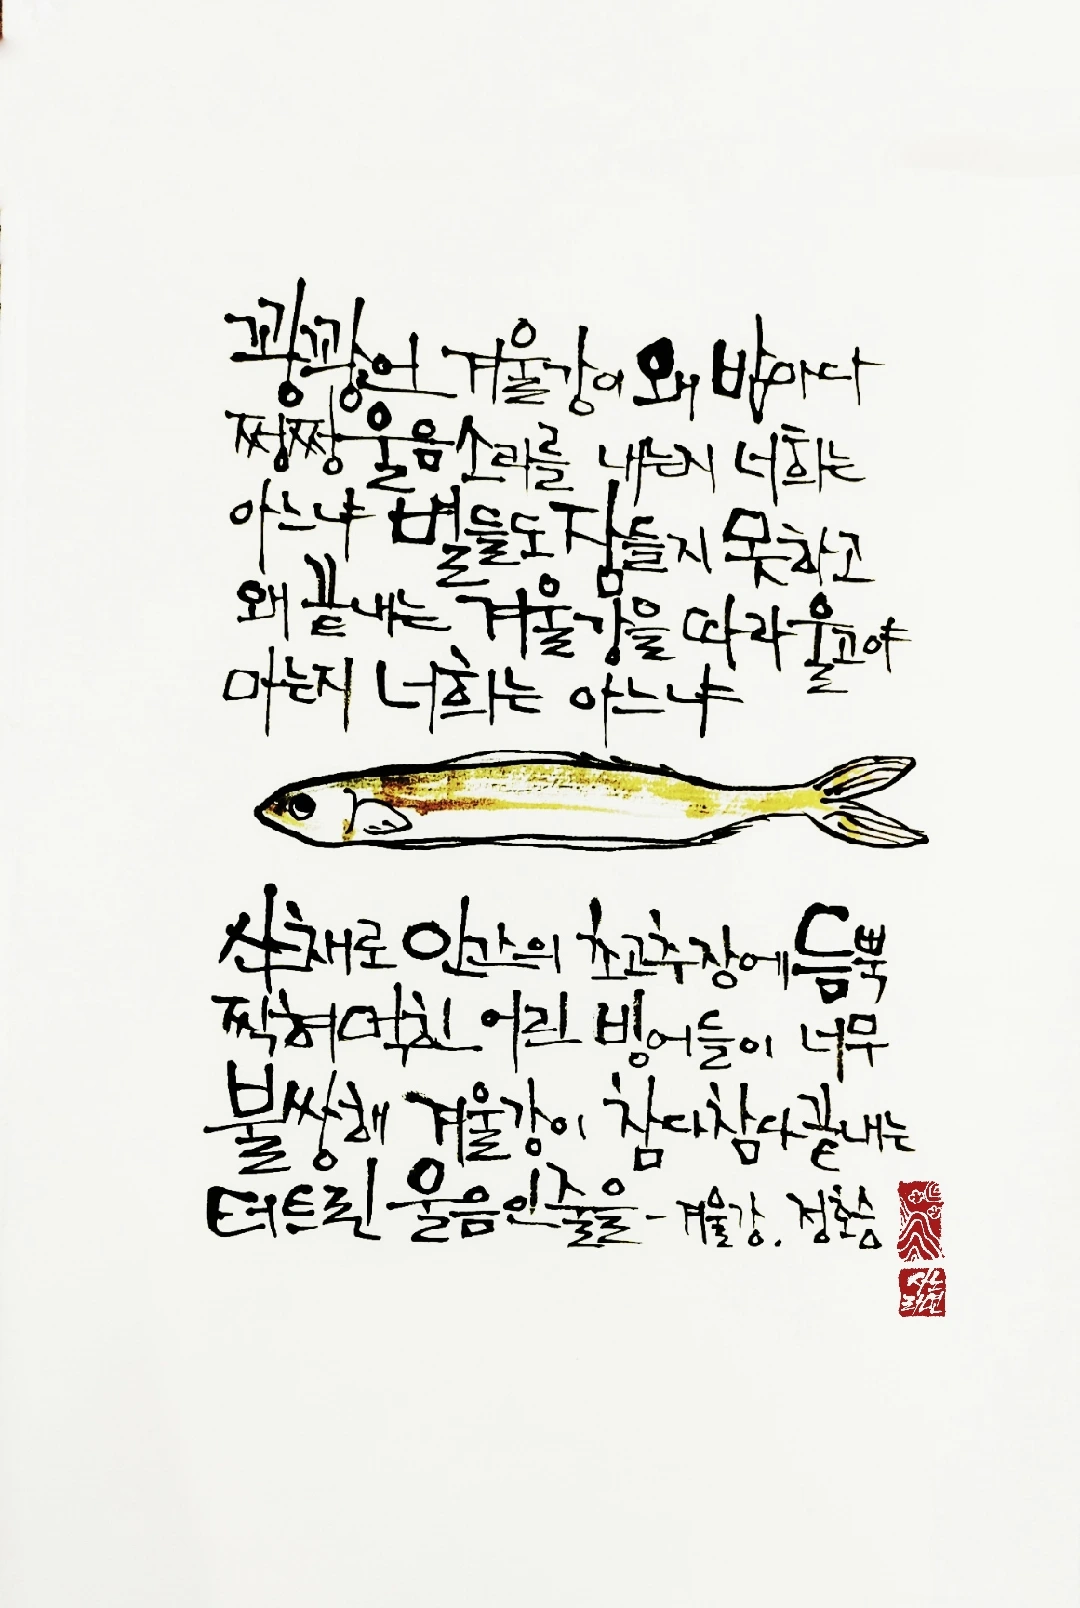 꽝꽝 언 겨울강이 왜 밤마다
쩡쩡 울음소리를 내는지 너희는
아느냐 별들도 잠들지 못하고
왜 끝내는 겨울강을 따라 울고야
마는지 너희는 아느냐
산 채로 인간의 초고추장에 듬뿍
찍혀 먹힌 어린 빙어들이 너무
불쌍해 겨울강이 참다 참다 끝내는
터트린 울음인 줄을 - 겨울강. 정호승